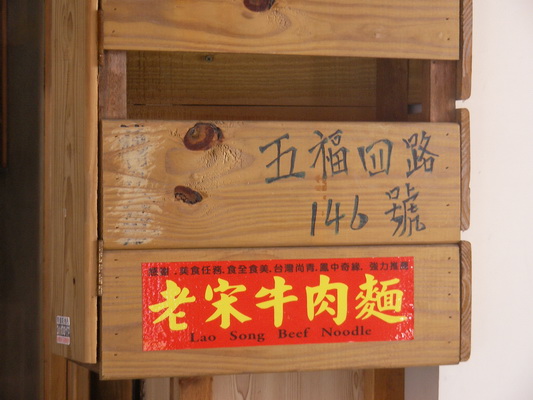 五福四路
146號
美食任務.食全食美.台灣尚青.鳳中奇緣.強力推薦
老宋牛肉麵
Lao Song Beef Noodle